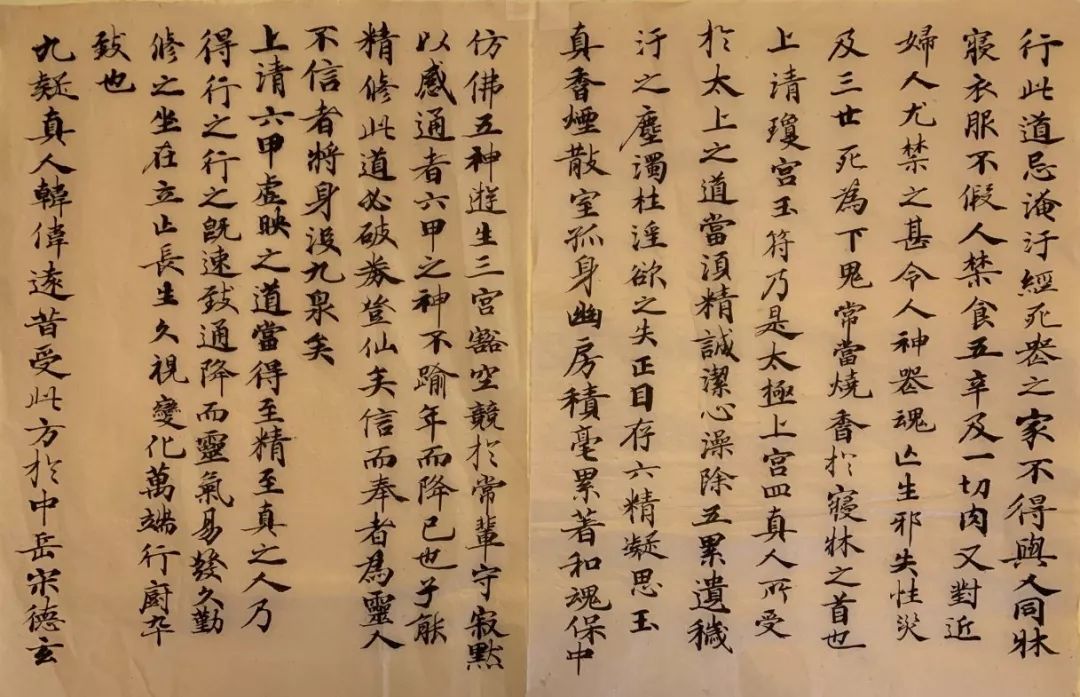 行此道忌淹汙經死喪之家不得與人同牀
寢衣服不假人禁食五辛及一切肉又對近
婦人尤禁之甚令人神喪魂亡生邪失性災
及三世死為下鬼常當燒香於寢牀之首也
上清瓊宮玉符乃是太極上宮四真人所受
於太上之道當須精誠潔心澡除五累遺穢
汙之塵濁杜淫欲之失正目存六精凝思玉
真香煙散室孤身幽房積毫累著和魂保中
仿佛五神遊生三宮豁空競於常輩守寂默
以感通者六甲之神不踰年而降已也子能
精修此道必破券登仙矣信而奉者為靈人
不信者將身沒九泉矣
上清六甲虛映之道當得至精至真之人乃
得行之行之既速致通降而靈氣易發久勤
修之坐在立亡長生久視變化萬端行廚卒
致也
九疑真人韓偉遠昔受此方於中岳宋德玄